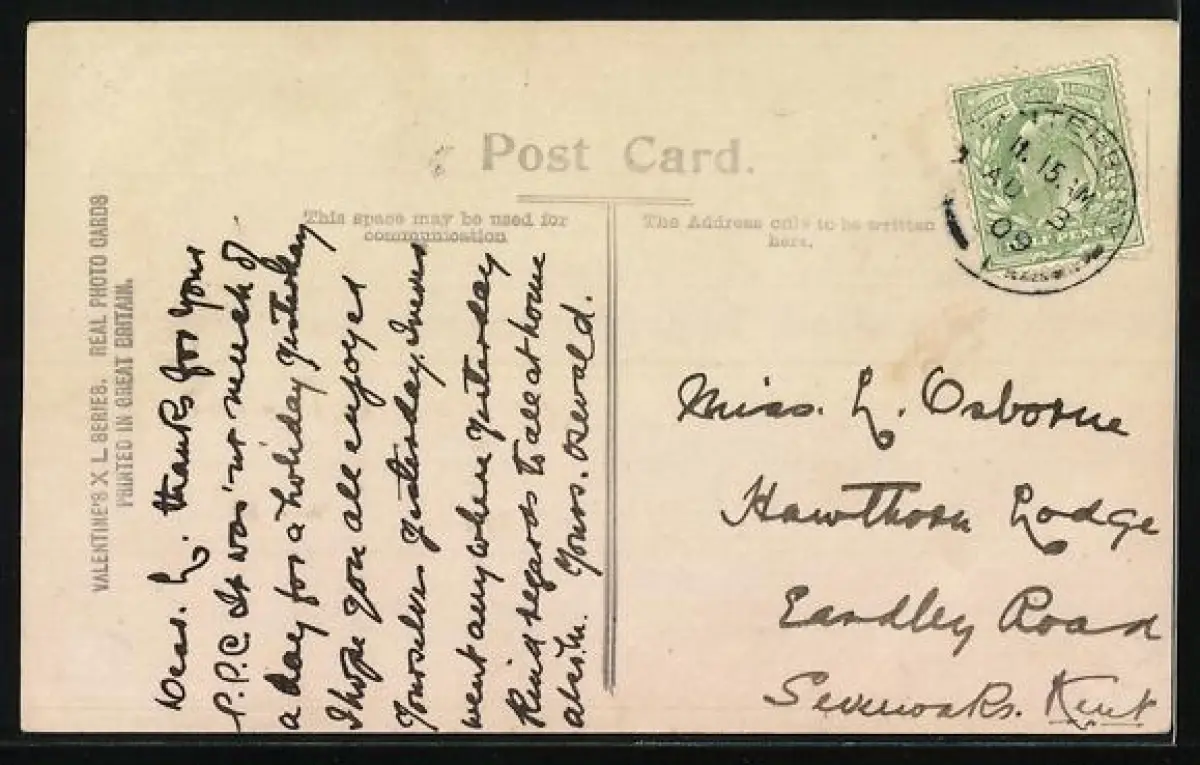 Post Card.
This space may be used for
communication
The Address only to be written
here.
VALENTINE'S X L SERIES. REAL PHOTO CARDS
PRINTED IN GREAT BRITAIN.
Dear. L. thanks for your
P.P.C It was'nt much of
a day for a holiday yesterday
I hope you all enjoyed
yourselves yesterday. I never
went anywhere yesterday
Kind regards to all at home
Yours. Oswald.
CANTERBURY
11.15. AM
AU 3
09
Miss. L. Osborne
Hawthorn Lodge
Eardley Road
Sevenoaks. Kent